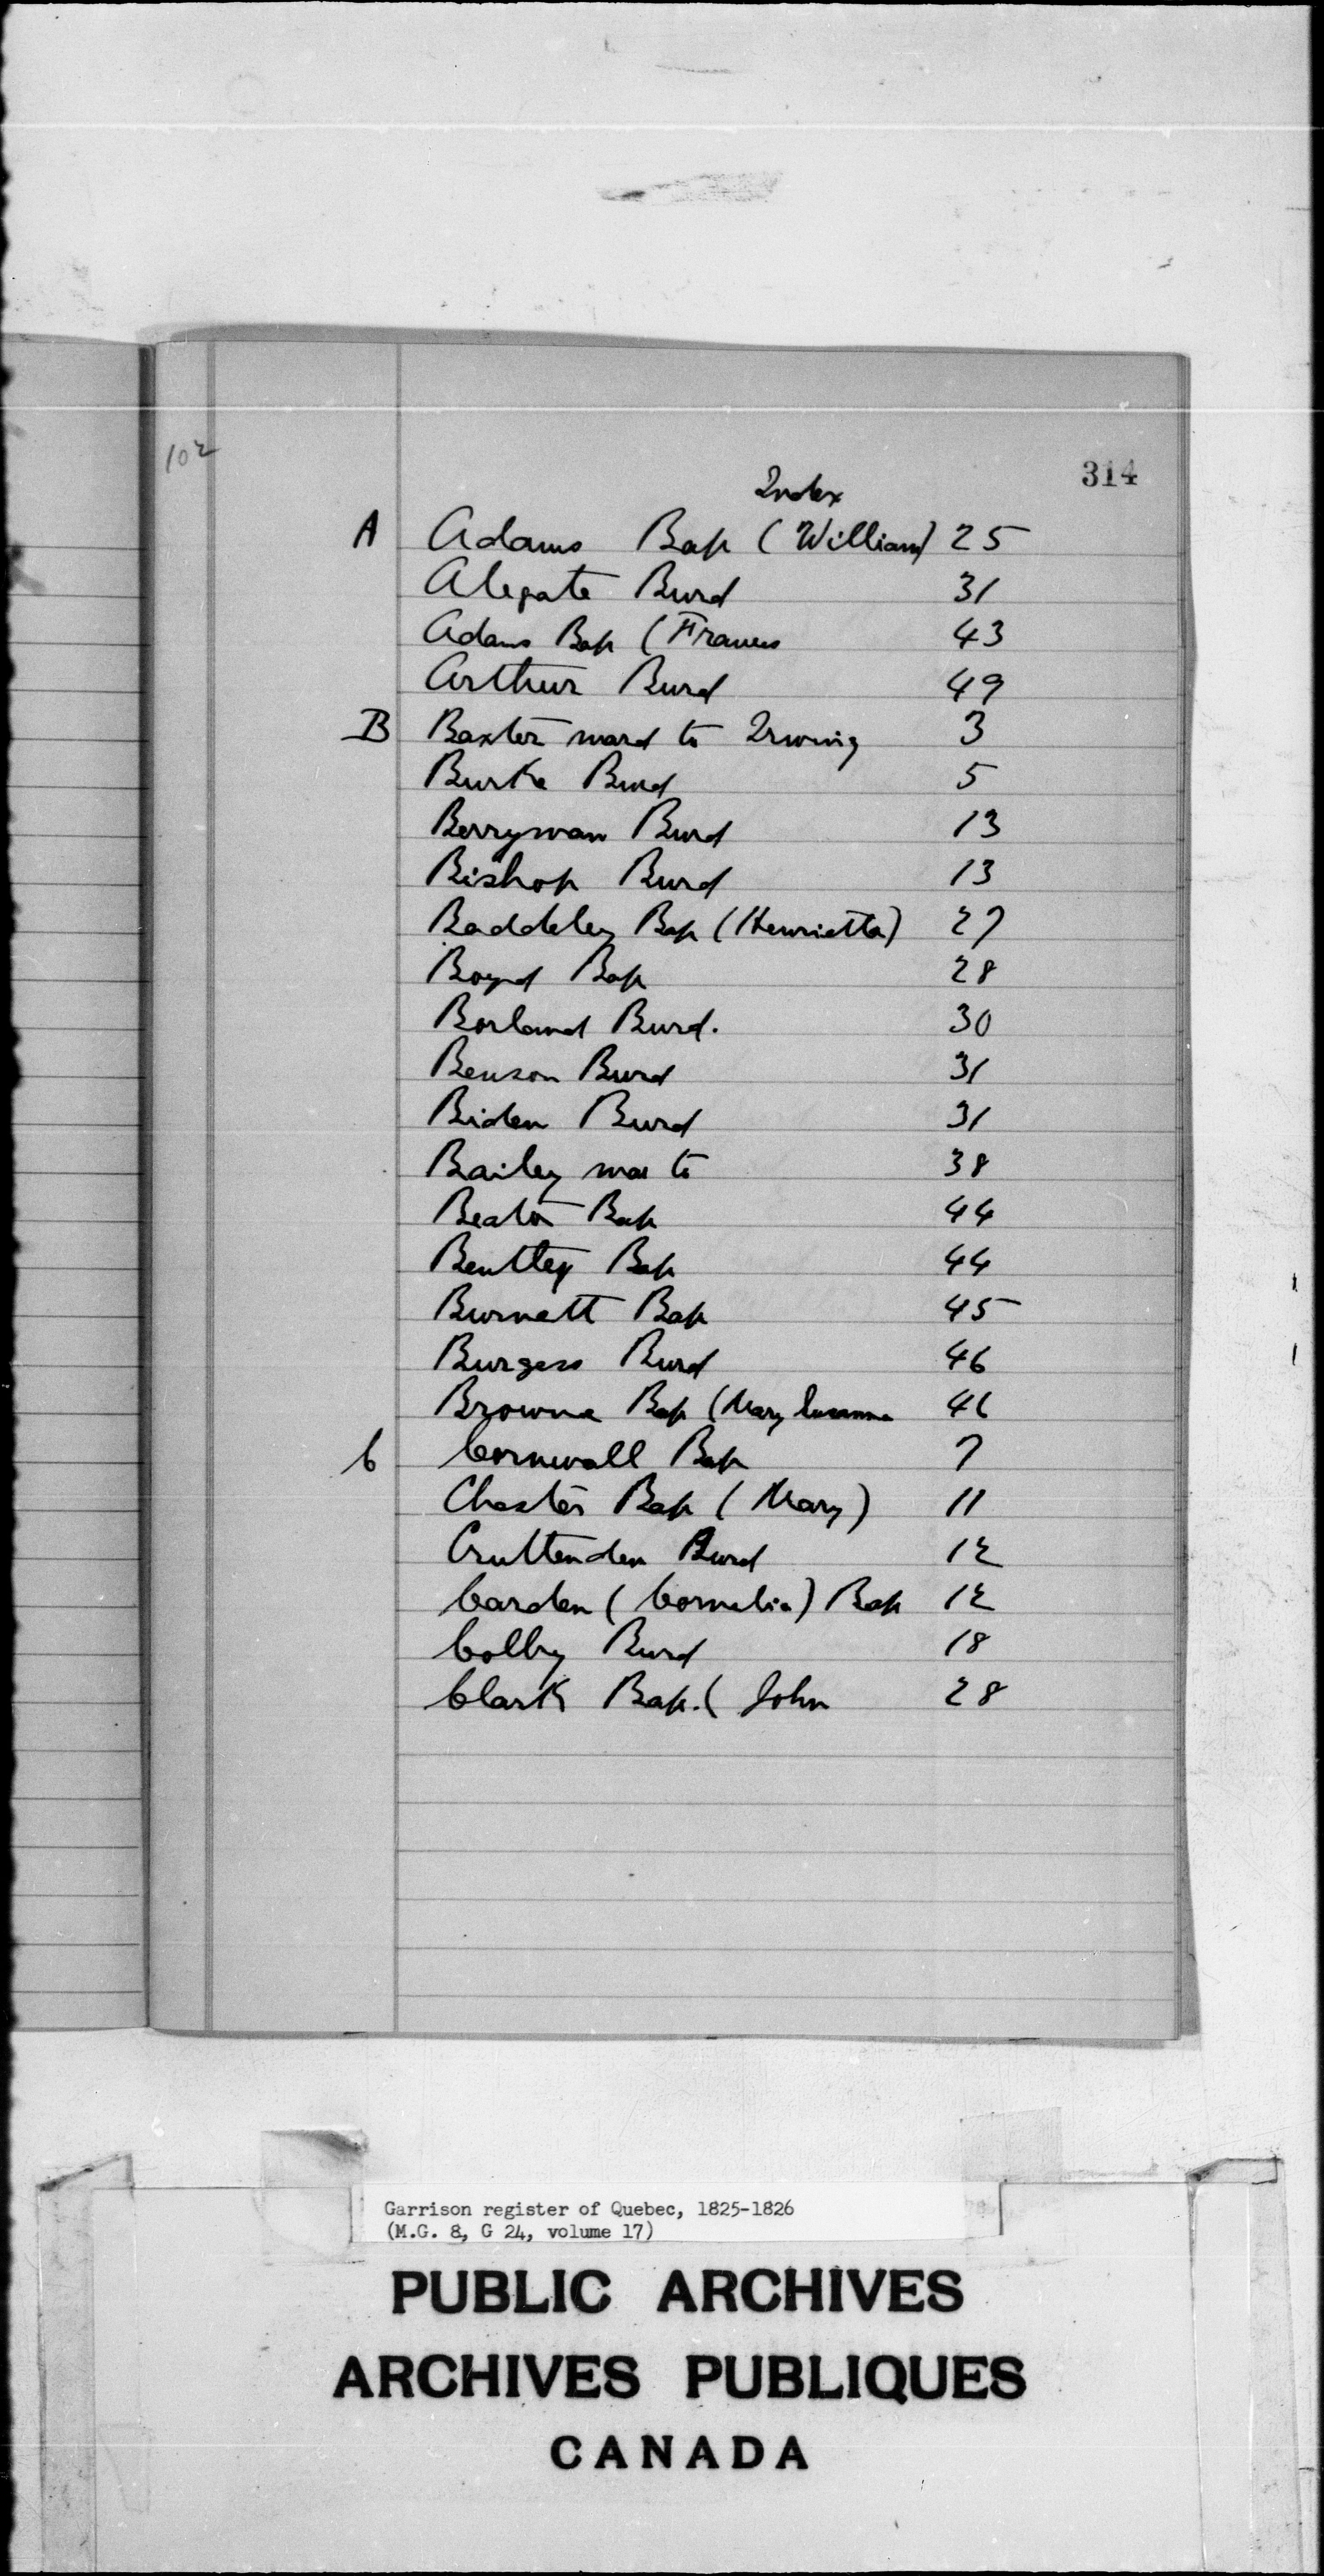 102
314
Index
A Adams Bap (William) 25
Alegate Burd 31
Adams Bap (Frances 43
Arthur Burd 49
B Baxter mard to Irwing 3
Burke Burd 5
Berryman Burd 13
Bishop Burd 13
Baddeley Bap (Henrietta) 27
Boyd Bap 28
Borland Burd. 30
Benson Burd 31
Biden Burd 31
Bailey mar to 38
Beaton Bap 44
Bentley Bap 44
Burnett Bap 45
Burgess Burd 46
Browne Bap (Mary Susanna 46
C Cornwall Bap 7
Chester Bap (Mary) 11
Cruttenden Burd 12
Carden (Cornelia) Bap 12
Colby Burd 18
Clark Bap. (John 28
Garrison register of Quebec, 1825-1826
(M.G. 8, G 24, volume 17)
PUBLIC ARCHIVES
ARCHIVES PUBLIQUES
CANADA